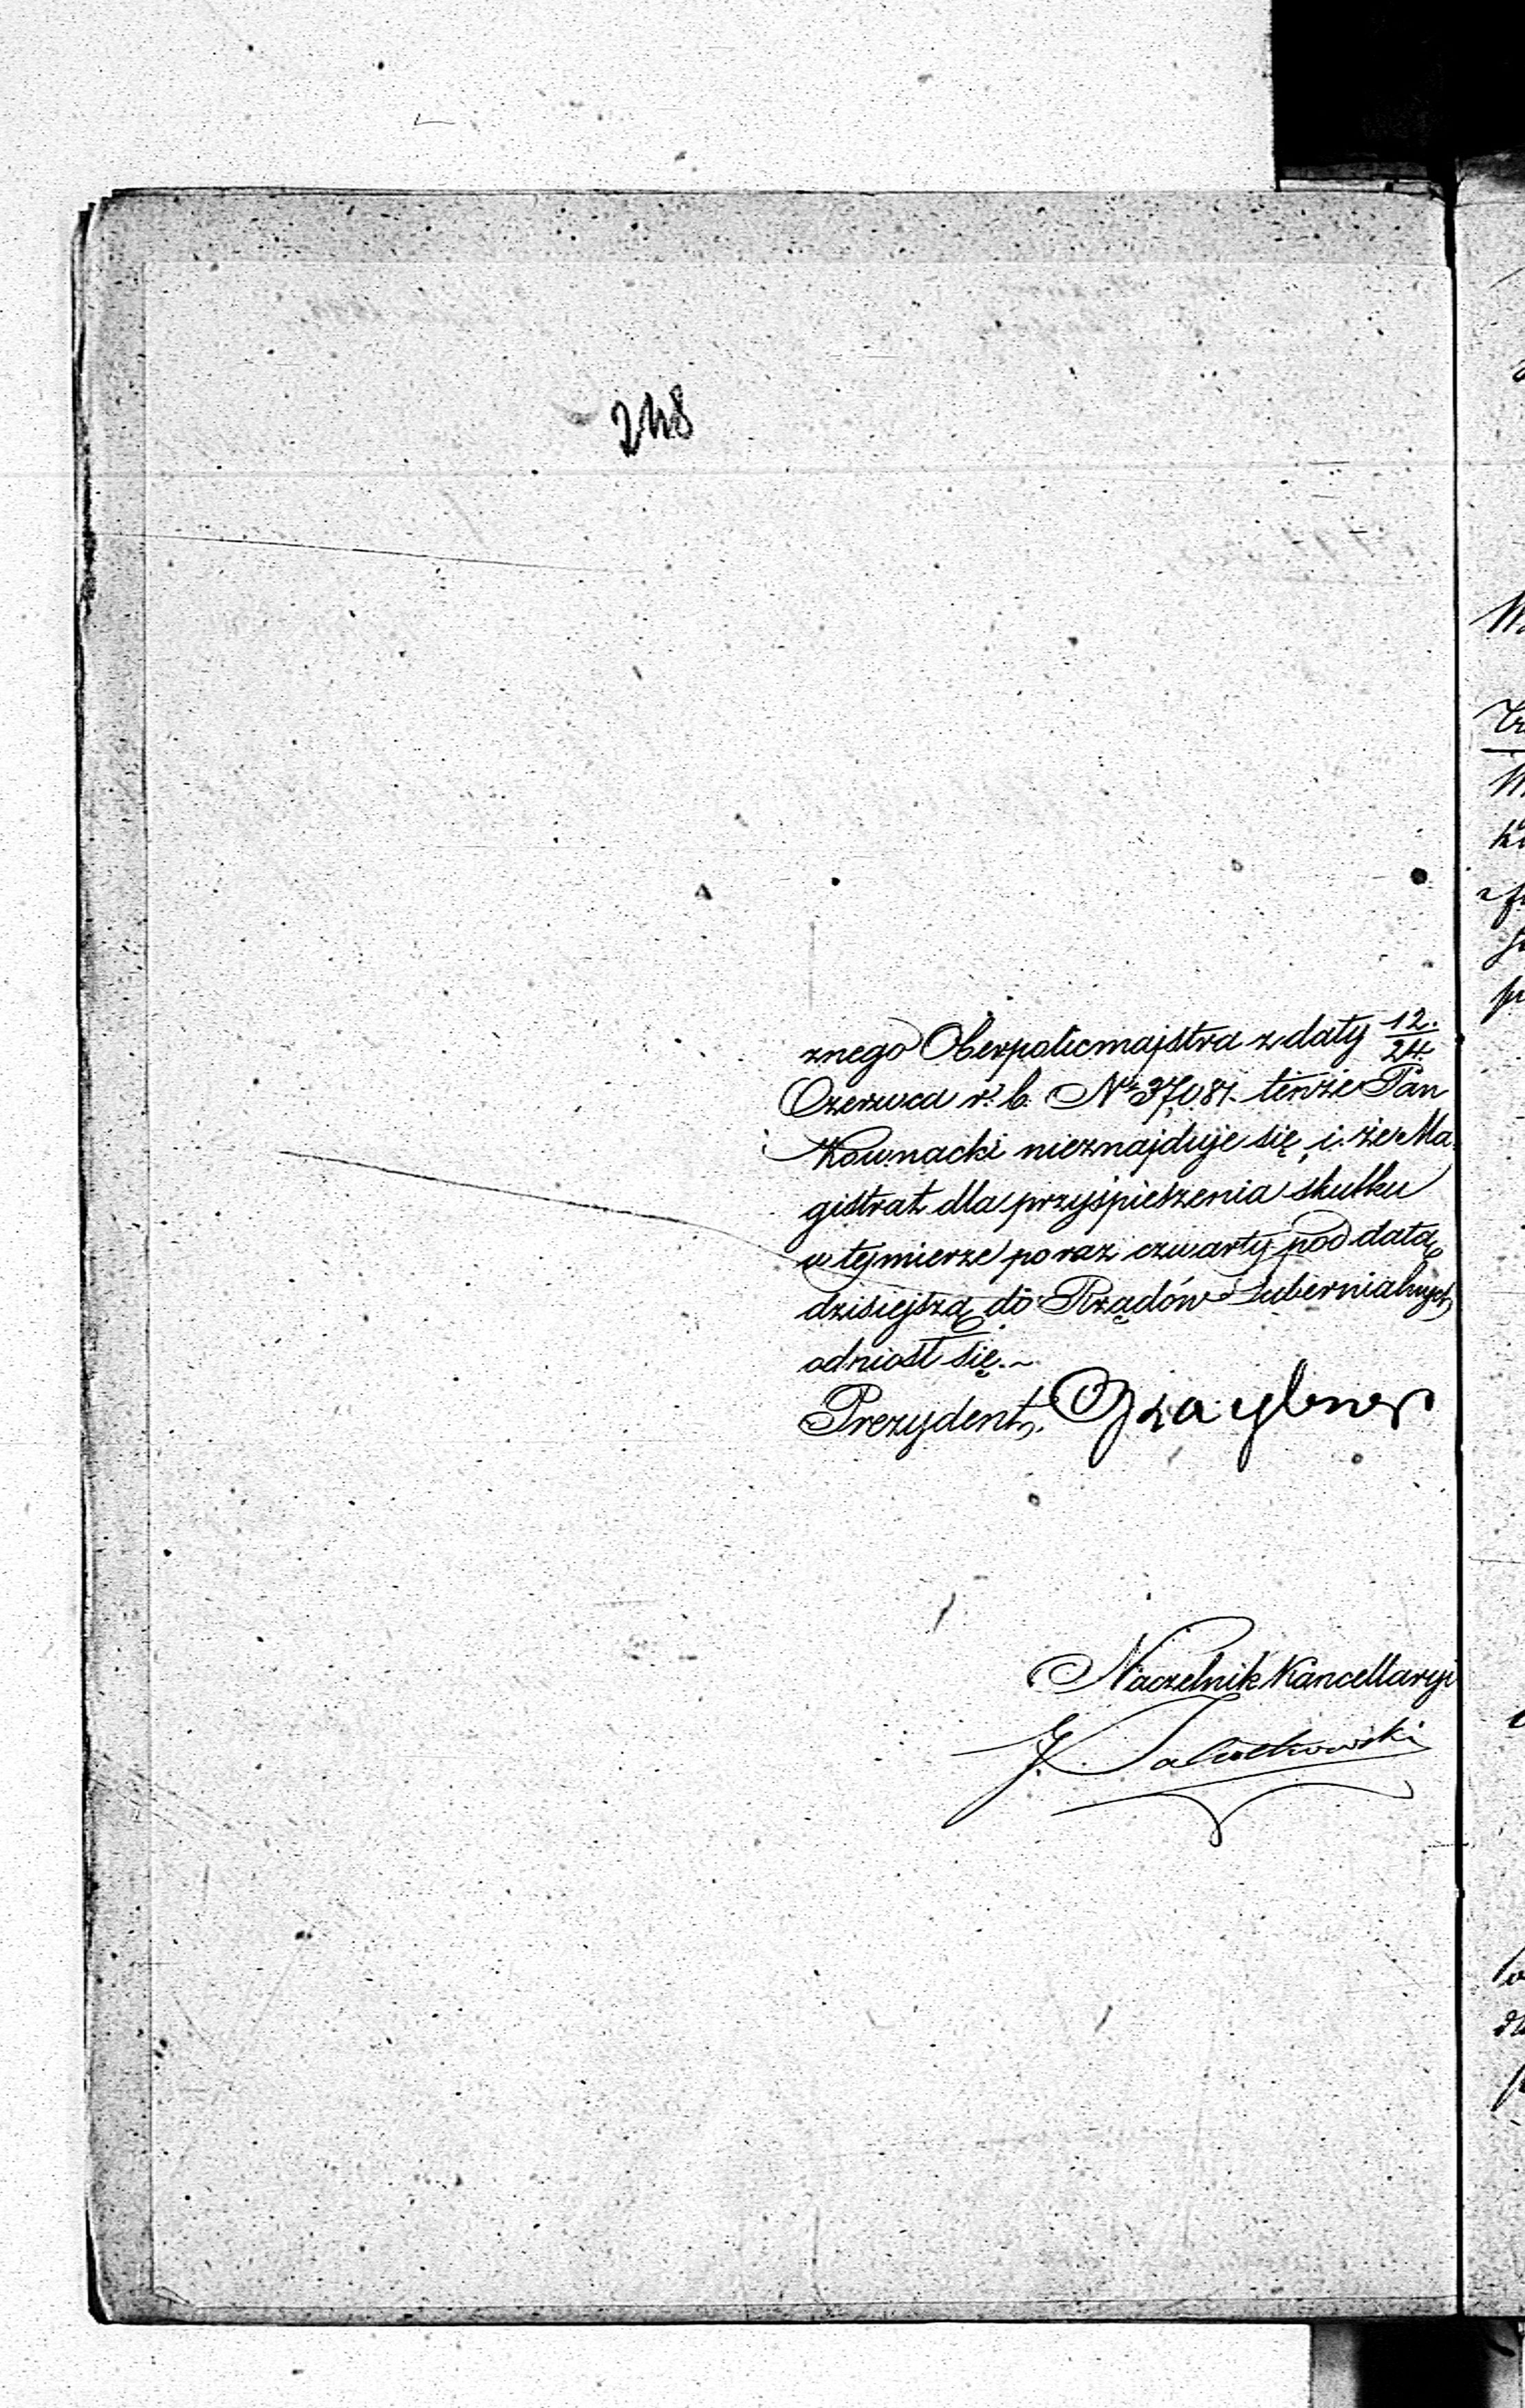 248
znego Oberpolicmajstra z daty 12/24.
Czerwca r. b. Nr 37081. tenże Pan
Kownacki nieznajduje się, i że Ma
gistrat dla przyśpieszenia skutku
w tej mierze po raz czwarty pod datą
dzisiejszą do Rządów Gubernialnych
odniosł się.~
Prezydent, Graybner
Naczelnik Kancellaryi
J.